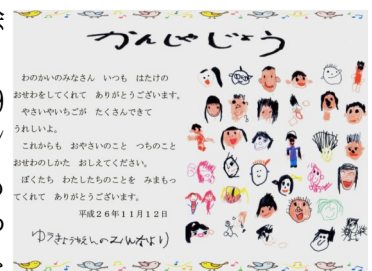 かんしゃじょう
わのかいのみなさん　いつも　はたけの
おせわをしてくれて　ありがとうございます。
やさいやいちごが　たくさんできて
うれしいよ。
これからも　おやさいのこと　つちのこと
おせわのしかた　おしえてください。
ぼくたち　わたしたちのことを　みまもっ
てくれて　ありがとうございます。
平成２６年１１月１２日